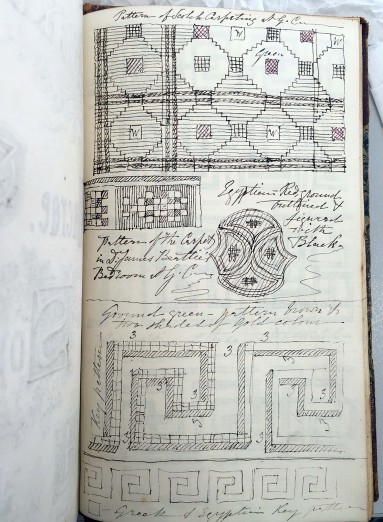 Pattern of Scotch Carpeting N.G. Co
W
W
green
W
W
Egyptian Red ground
outlined &
figured
with
Black
Pattern of the Carpet
in Dr James Beattie's
Bedroom N.G. Co
Ground green - pattern brown &
two shades of Gold colour
3 3 3
3 3
3 3
Key pattern
Greek & Egyptian Key pattern